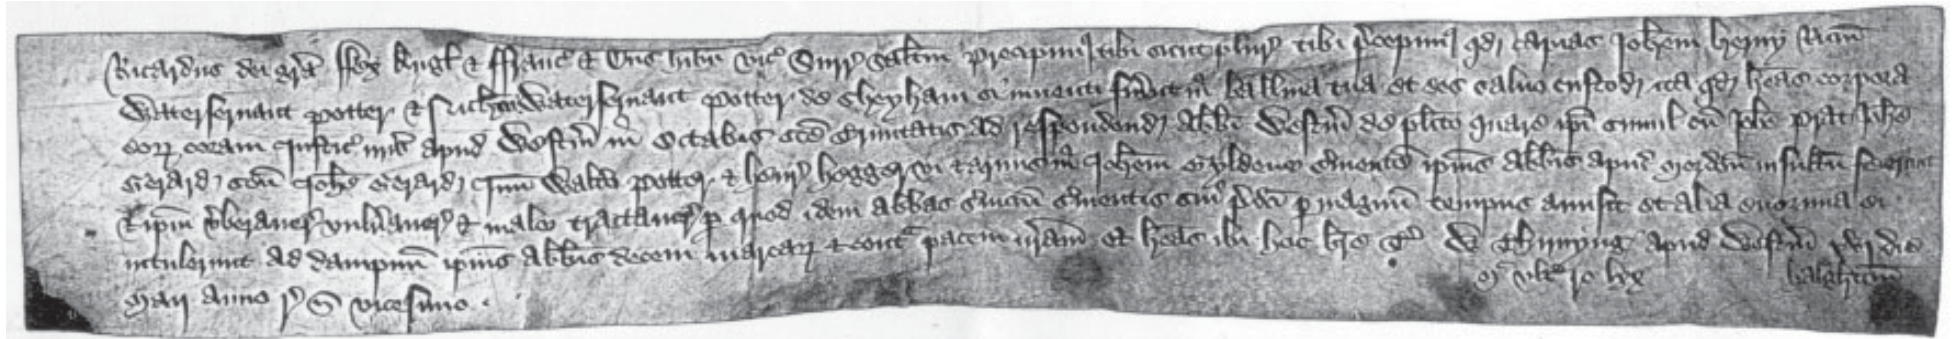 Ricardus dei gra Rex Angl & Franc & Dns hibn vic Surr saltm Precipim tibi sicut plur tibi precepim qd capias Johem henry
Waterservant Potter & Ric Waterservant Potter de Cheyham si inventi fuint in balliva tua et eos salvo custod ita qd heas corpora
eor coram Justic nris apud Westm in Octabis sce Trinitatis ad respondend Abbi Westm de plito quare ipi simul cum Johe Prat Johe
Gerard Johe Gerard Walto Potter & henr hogger vi & armis in Johem Gyldene svientem ipius Abbis apud Mordon insultum fecerunt
& ipm vberaver vulnaver & male tractaver p quod idem Abbas svicium svientis sui pdci p magnum tempus amisit et alia enormia ei
intulerunt ad dampnum ipius Abbis decem marcar & contra pacem nram et heas ibi hoc bre T W Thirnyng apud Westm die
Maij anno r n vicesimo